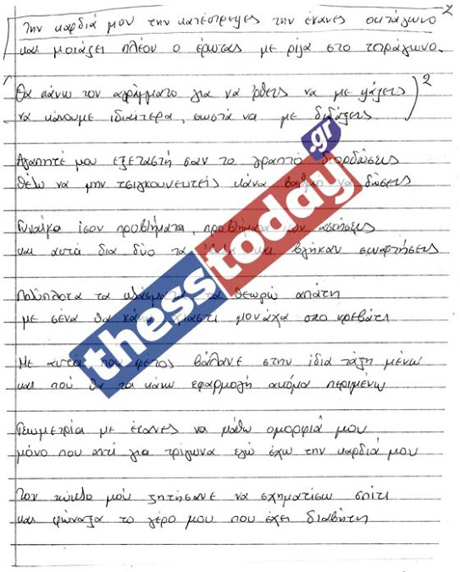 2
Την καρδιά μου την κατέστρεψες την έκανες οκτάγωνο
και μοιάζει πλέον ο έρωτας με ρίζα στο τετράγωνο.
Θα κάνω τον αγράμματο για να ρθεις να με ψάξεις
να κάνουμε ιδιαίτερα, σωστά να με διδάξεις
2
Αγαπητέ μου εξεταστή σαν το γραπτό διορθώσεις
θέλω να μην τσιγκουνευτείς κάνα βαθμό να δώσεις
Γυναίκα ίσον προβλήματα, προβλήματα ίσον ασκήσεις
και αυτά δια δύο τα και βγήκαν συναρτήσεις
Πολύπλοκα τα κλάσματα τα θεωρώ απάτη
με σένα θα κάνω μονάχα στο κρεβάτι
Με αυτά που φέτος βάλανε στην ίδια τάξη μένω
και πού θα τα κάνω εφαρμογή ακόμα περιμένω
Γεωμετρία με έκανες να μάθω ομορφιά μου
μόνο που αντί για τρίγωνα εγώ έχω την καρδιά μου
Τον κύκλο μού ζητήσανε να σχηματίσω σπίτι
και φώναξα το γέρο μου που έχει διαβήτη
thesstoday.gr